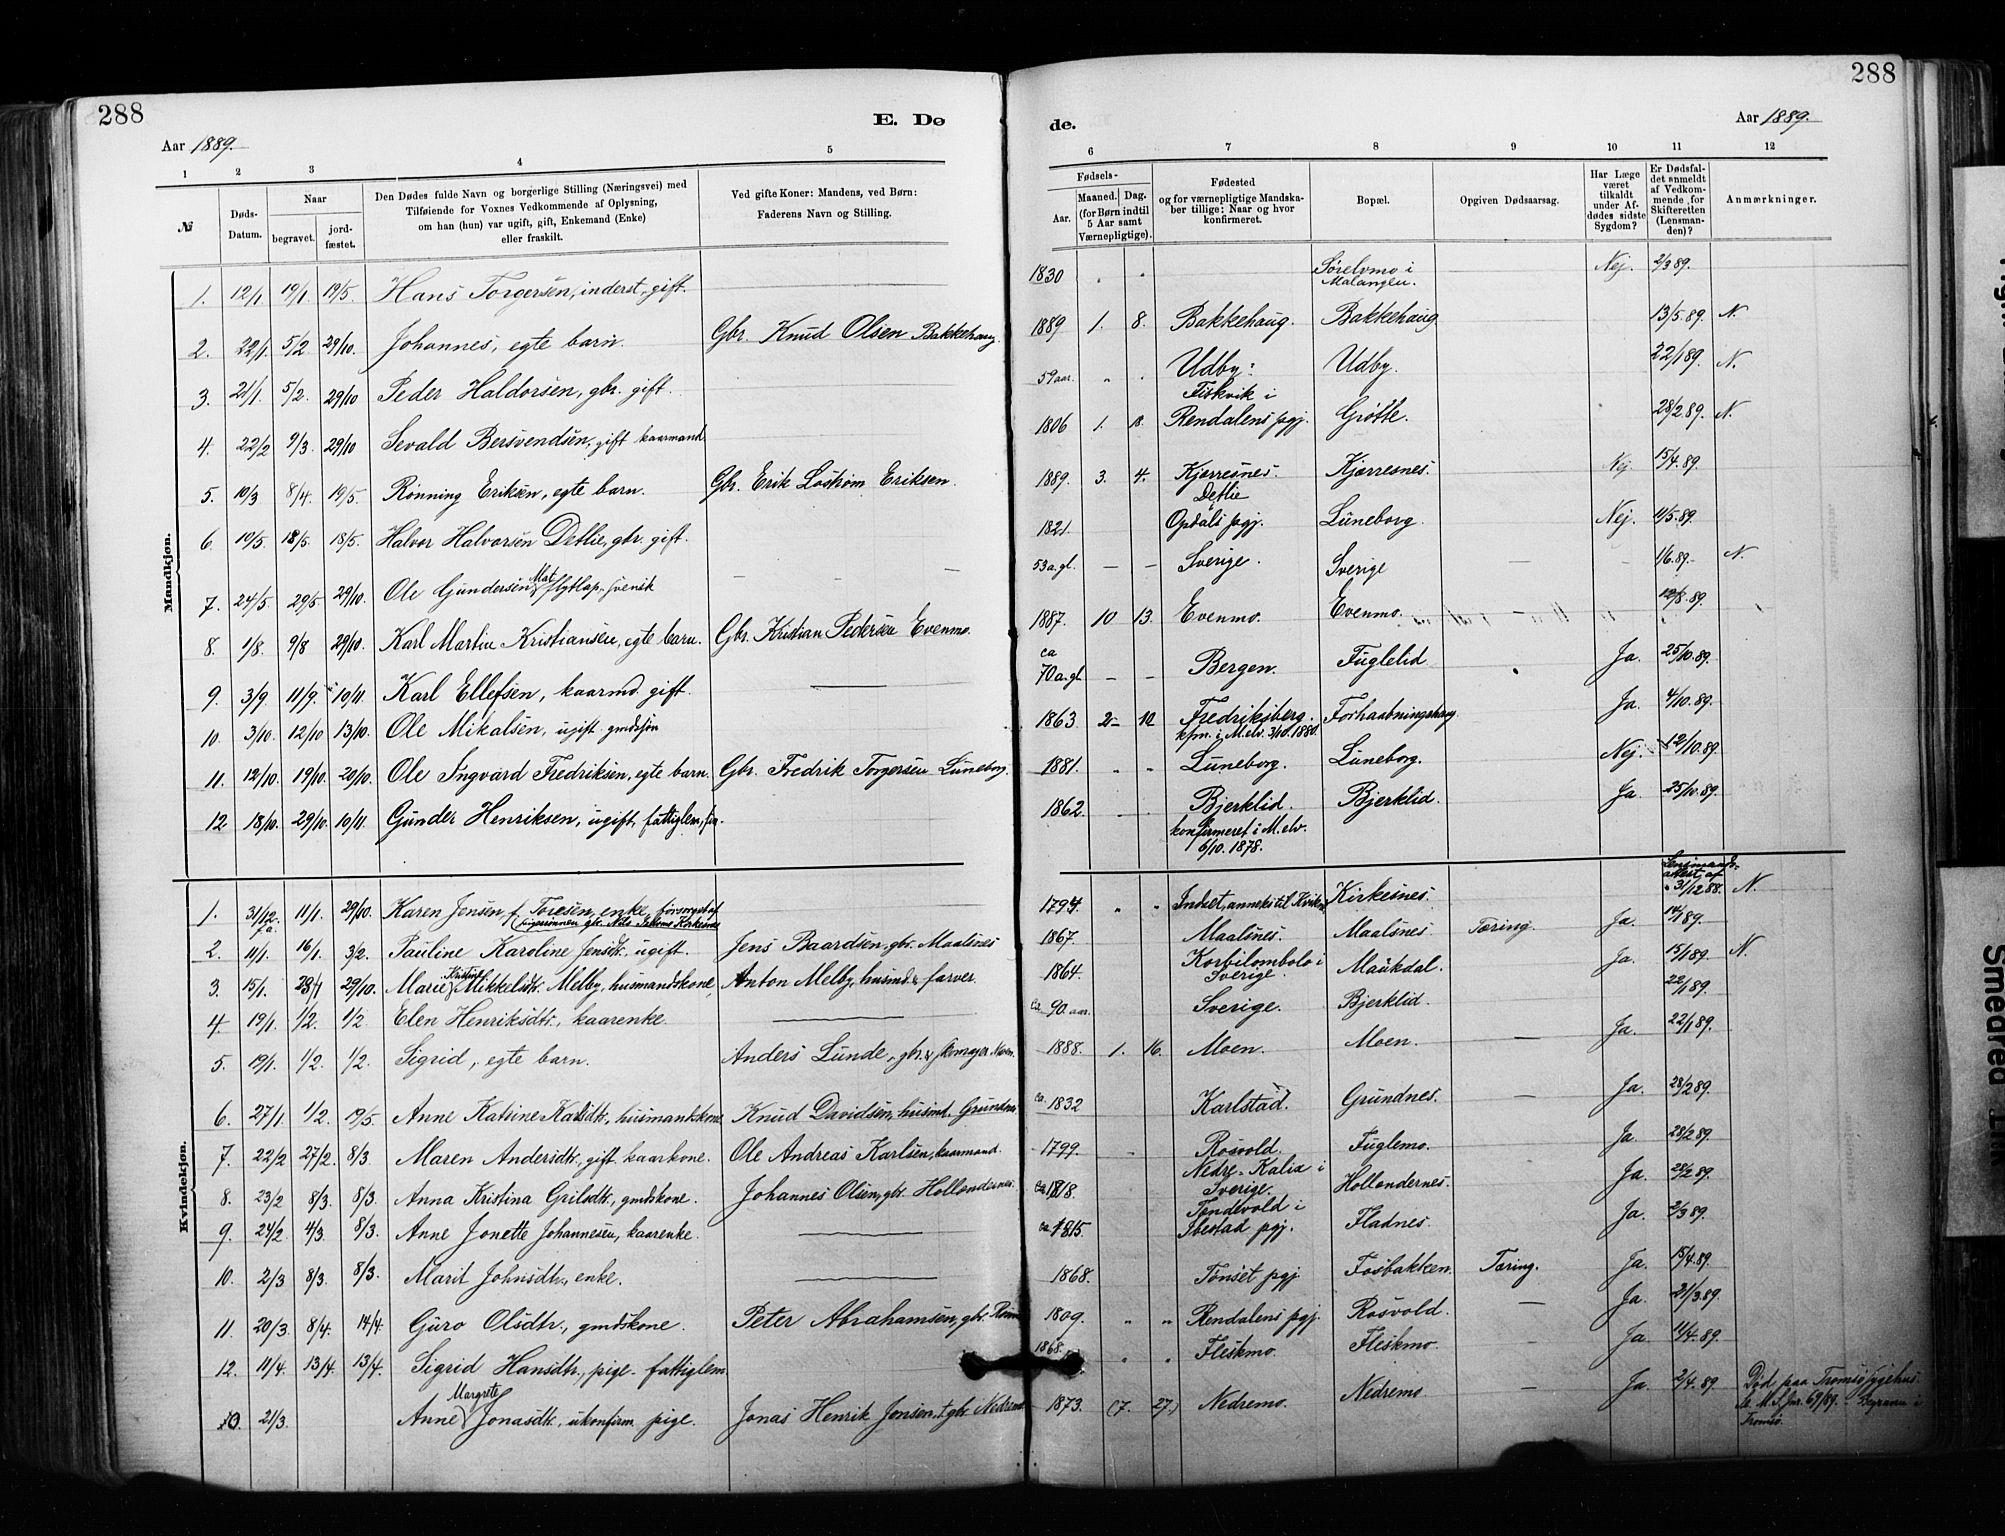 288
288
E. Dø
de.
Aar 1889.
Aar 1889.
1 2 3 4 5 6 7 8 9 10 11 12
№
Døds-Datum.
Naar
begravet.
jord-fæstet.
Den Dødes fulde Navn og borgerlige Stilling (Næringsvei) med
Tilføiende for Voxnes Vedkommende af Oplysning,
om han (hun) var ugift, gift, Enkemand (Enke)
eller fraskilt.
Ved gifte Koner: Mandens, ved Børn:
Faderens Navn og Stilling.
Fødsels-
Aar.
Maaned. Dag.
(for Børn indtil
5 Aar samt
Værnepligtige).
Fødested
og for værnepligtige Mandska-
ber tillige: Naar og hvor
konfirmeret.
Bopæl.
Opgiven Dødsaarsag.
Har Læge
været
tilkaldt
under Af-
dødes sidste
Sygdom?
Er Dødsfal-
det anmeldt
af Vedkom-
mende for
Skifteretten
(Lensman-
den)?
Anmærkninger.
Mandkjøn.
1. 12/1 19/1 19/5. Hans Torgersen, inderst, gift. 1830 Sørelvmo i Malangen. Nej. 2/3 89.
2. 22/1 5/2 29/10. Johannes, egte barn. Gbr. Knud Olsen Bakkehaug 1889 1. 8. Bakkehaug. Bakkehaug 13/5.89. N.
3. 21/1. 5/2. 29/10 Peder Haldorsen, gbr. gift. 59 aar. Udby. Udby. 22/1 89. N.
4. 22/2 9/3 29/10 Sevald Bersvendsen, gift kaarmand 1806 1. 18. Fiskvik i Rendalens pgj. Grøtte. 28/2 89. N.
5. 10/3 8/4. 19/5. Rønning Eriksen, egte barn. Gbr. Erik Løstrøm Eriksen. 1889 3. 4. Kjerresnes. Kjærresnes. Nej. 15/4.89.
6. 10/5. 18/5. 18/5. Halvor Halvorsen Detlie, gbr. gift. 1821. Detlie Opdals pgj. Lüneborg. Nej. 11/5.89.
7. 24/5. 29/5. 29/10. Ole Gundersen Mat flytlap. svensk 53 a.gl. — — Sverige. Sverige 1/6.89. N.
8. 1/8. 9/8 29/10. Karl Martin Kristiansen, egte barn. Gbr. Kristian Pedersen Evenmo. 1887. 10 13. Evenmo. Evenmo. 12/8.89.
9. 3/9. 11/9. 10/11. Karl Ellefsen, kaarmd. gift. ca 70 a.gl. — — Bergen. Fuglelid Ja. 25/10.89.
10. 3/10. 12/10 13/10. Ole Mikalsen, ugift gmdssøn 1863 2 10 Fredriksberg. kfm. i M.elv. 3/10.1880. Forhaabningshaug Ja. 4/10.89.
11. 12/10. 19/10. 20/10. Ole Ingvard Fredriksen, egte barn. Gbr. Fredrik Torgersen Lüneborg. 1881. Lüneborg. Lüneborg. Nej. 12/10.89.
12 18/10. 29/10. 10/11. Gunder Henriksen, ugift, fattiglem, 1862. Bjerklid. konfirmeret i M.elv. 6/10.1878. Bjerklid. Ja. 25/10.89.
Kvindekjøn.
1. 31/12. f.a. 11/1. 29/10. Karen Jensen f. Toresen, enke, forsørget af 1794 Indset, anneks til Kvikne Kirkesnes. Lensmands-attest af 31/12 88. N.
2. 11/1. 16/1. 3/2. Pauline Karoline Jensdtr. ugift. Jens Baardsen, gbr. Maalsnes 1867. Maalsnes. Maalsnes Tæring. Ja. 14/1 89.
3. 15/1. 23/1 29/10. Marie Kristine Mikkelsdtr. Melby, husmandskone, Anton Melby, husmd. & farver. 1864. Korbilombolo i Sverige. Maukdal. Ja. 15/1 89. N.
4. 19/1. 1/2. 1/2. Elen Henriksdtr., kaarenke. ca. 90 aar. Sverige. Bjerklid. 22/1 89.
5. 19/1. 1/2. 1/2. Sigrid, egte barn. Anders Lunde, gbr. & Moen. 1888. 1. 16. Moen. Moen. — Ja. 22/1 89.
6. 27/1. 1/2. 19/5. Anne Katrine Karlsdtr., husmandskone Knud Davidsen, husmd. Grundnes ca. 1832 Karlstad. Grundnes. Ja. 28/2 89.
7. 22/2 27/2. 8/3 Maren Andersdtr., gift kaarkone. Ole Andreas Karlsen, kaarmand. 1799. Rosvold. Fuglemo. Ja. 28/2 89.
8. 23/2 8/3. 8/3. Anna Kristina Grilsdtr., gmdskone. Johannes Olsen, gbr. Hollendernes. ca 1818. Nedre-Kalix i Sverige. Hollendernes. Ja. 24/2 89.
9. 24/2 4/3. 8/3. Anne Jonette Johannesen, kaarenke. ca. 1815 Tendevold i Ibestad pgj. Fladnes. Ja. 2/3 89.
10. 2/3 8/3. 8/3. Marit Johnsdtr., enke. 1868. Tönset pgj. Fosbakken. Tæring. Ja. 15/4.89.
11. 20/3. 8/4. 14/4. Guro Olsdtr., gmdskone. Peter Abrahamsen, gbr. 1809. Rendalens pgj. Rosvold. — Ja. 21/3 89.
12. 11/4. 13/4. 13/4. Sigrid Hansdtr., pige. fattiglem. 1868. Fleskmo. Fleskmo. — Ja. 11/4.89.
10. 21/3. Anne Margrete Jonasdtr., ukonfirm. pige. Jonas Henrik Jensen, gbr. Nedremo 1873. (7. 27.) Nedremo. Nedremo — Ja. 2/4.89 Død paa Tromsø sygehus. M.S. Jnr. 69/89. Begraven i Tromsø.
Smedrud